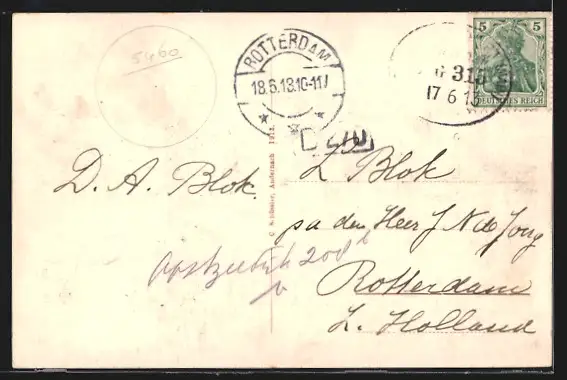 5460
ROTTERDAM
18.6.13.10-11V
315
17 6 13
5 5
DEUTSCHES REICH
D. A. Blok.
Z Blok
pa den Heer J N de Jong
Rotterdam
Z. Holland
C Schlüster, Andernach 1912